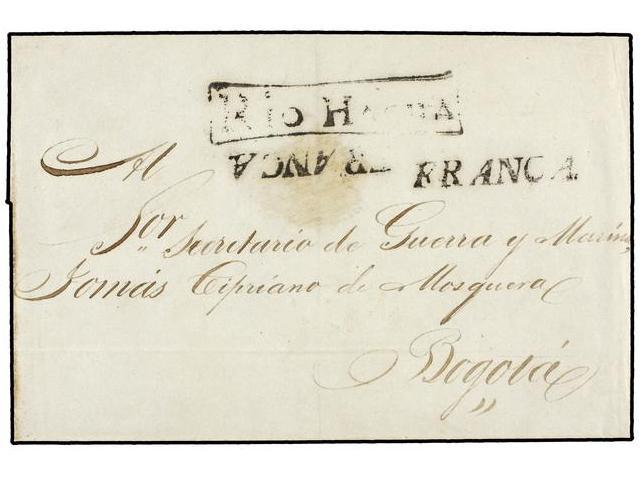 RIO HACHA
FRANCA
FRANCA
Al
Sor Secretario de Guerra y Marina
Tomás Cipriano de Mosquera
Bogotá